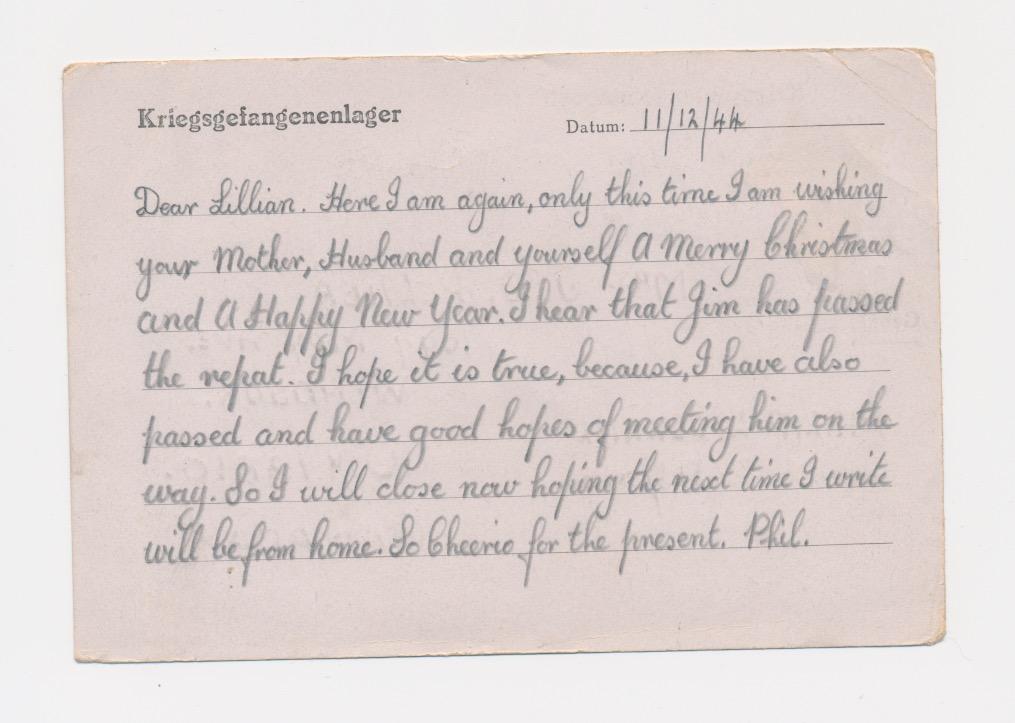 Kriegsgefangenenlager
Datum: 11/12/44
Dear Lillian. Here I am again, only this time I am wishing
your Mother, Husband and yourself A Merry Christmas
and A Happy New Year. I hear that Jim has passed
the repat. I hope it is true, because, I have also
passed and have good hopes of meeting him on the
way. So I will close now hoping the next time I write
will be from home. So Cheerio for the present. Phil.